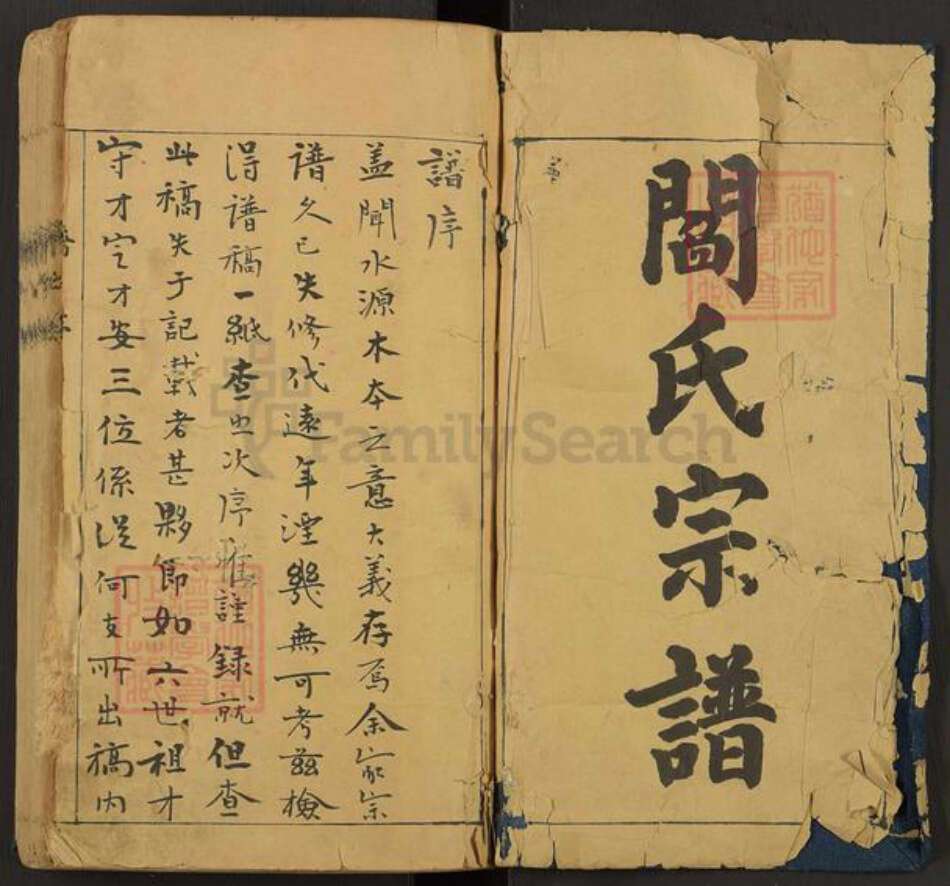 閻氏宗譜
譜序
盖聞水源木本之意大義存焉余家宗
譜久已失修代遠年湮幾無可考兹檢
得譜稿一紙查照次序雖謹録就但查
此稿失于記載者甚夥節如六世祖才
守才定才安三位係從何支所出稿内
FamilySearch